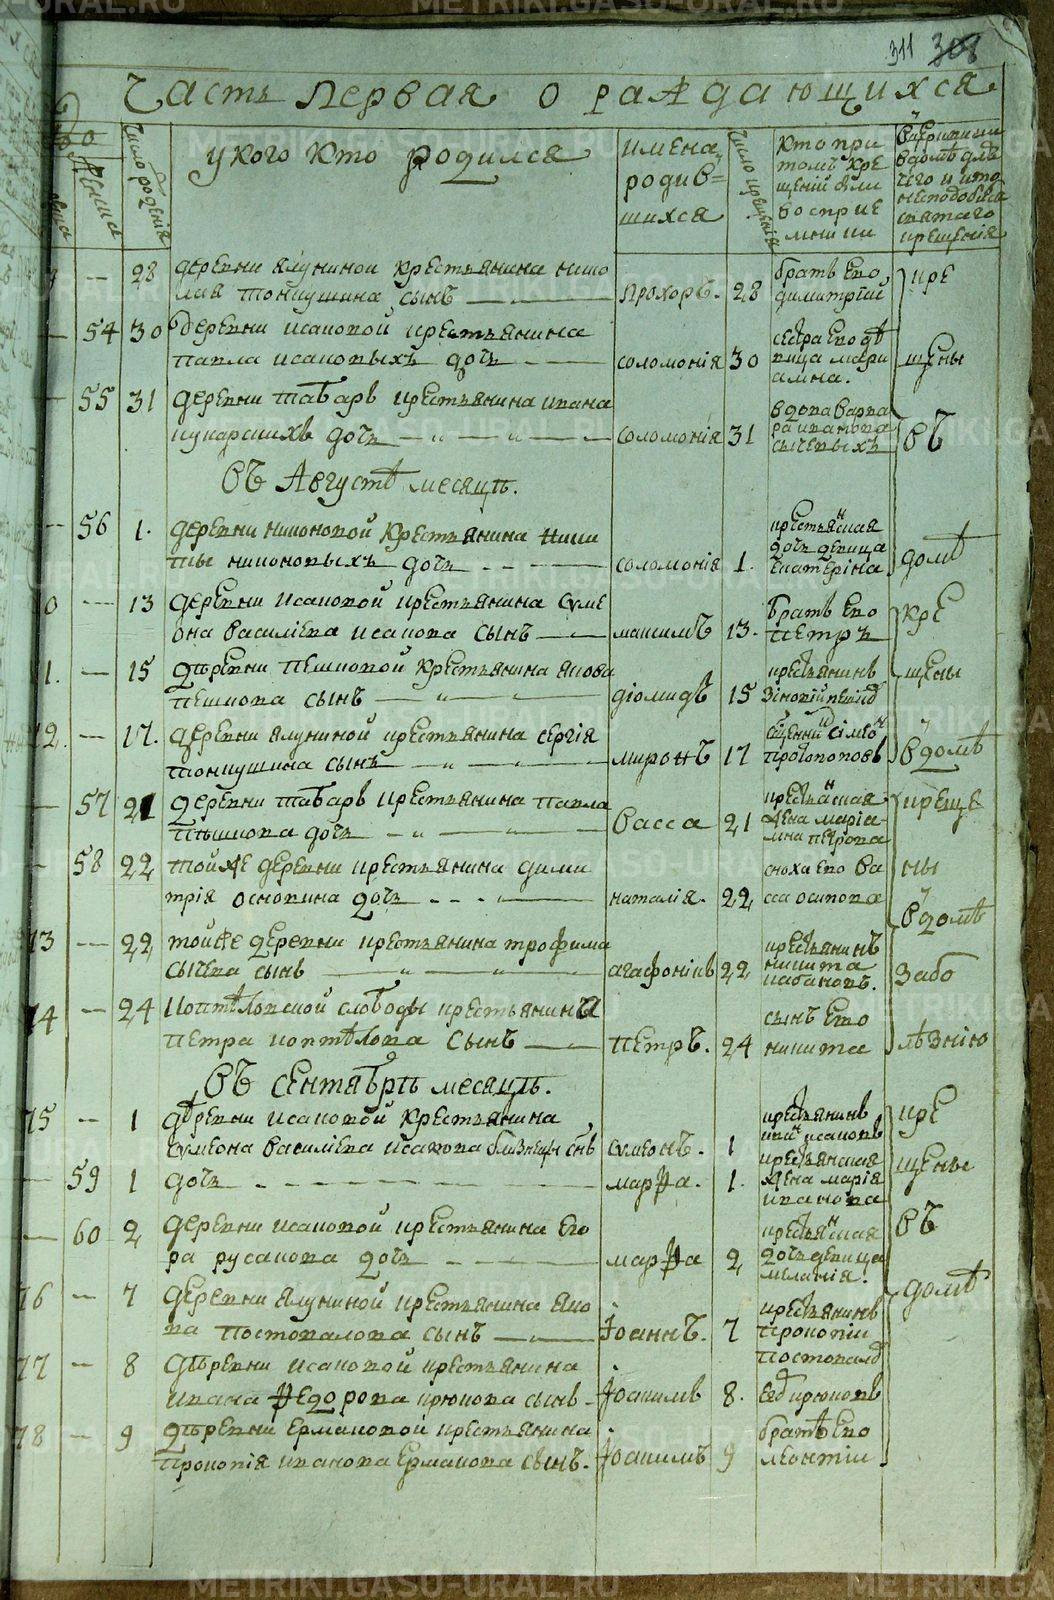 311 308
Часть первая о раждающихся
Число родения
у кого кто родился
имена родив=шихся
Число крещения
кто при томъ крещении были восприемники
28 деревни ялуниной крестьянина нико
лая тонкушина сынъ — прохоръ. 28 братъ ево димитрий
54 30 деревни исаковой крестьянина
павла исаковыхъ дочь — соломонія 30 сестра ево дѣвица мариамна.
55 31 деревни таборъ крестьянина ивана
кукарскихъ дочь — соломонія 31 вдова варвара иванова сычевыхъ
Въ Августѣ месяцѣ.
56 1. деревни никоновой крестьянина ники
ты никоновыхъ дочь — соломонія 1. крестьянская дочь девица екатеріна
13 деревни исаковой крестьянина симе
она василіева исакова сынъ — максимъ 13. братъ ево петръ
15 дѣревни пешковой крестьянина якова
пешкова сынъ — діомидъ 15 крестьянинъ зіновій
17. деревни ялуниной крестьянина сергія
тонкушина сынъ — миронъ 17 сіմео протопоповъ
57 21 деревни таборъ крестьянина павла
пѣшкова дочь — васса 21 крестьянская жена маріамна петрова
58 22 той же деревни крестьянина дими
трія оснокина дочь — наталія. 22 сноха ево васса осипова
73 — 22 той же деревни крестьянина трофима
сычева сынъ — агафоникъ 22 крестьянинъ никита кабановъ.
74 — 24 коптѣловской слободы крестьянина
петра коптѣлова сынъ — петръ. 24 сынъ ево никита
Въ Сентябрѣ месяцѣ.
75 — 1 дѣревни исаковой крестьянина
симеона василіева исакова близнецы снъ симеонъ. 1 крестьянинъ исаковъ
59 1 дочь — марѳа. 1. крестьянская жена марія иванова
60 2 деревни исаковой крестьянина его
ра русакова дочь — марѳа 2 крестьянская дочь девица меланія.
76 — 7 деревни ялуниной крестьянина яко
ва постовалова сынъ — іоаннъ. 7 крестьянинъ прокопіи постовалов
77 — 8 дѣревни исаковой крестьянина
ивана ѳедорова крюкова сынъ — іоакимъ 8. крюковъ
78 — 9 дѣревни ермаковой крестьянина
прокопія иванова ермакова сынъ. іоакимъ 9 братъ ево леонтіи
крещены въ домѣ
крещены в домѣ
крещены в домѣ за болѣзнію
крещены въ домѣ
METRIKI.GASU-URAL.RU